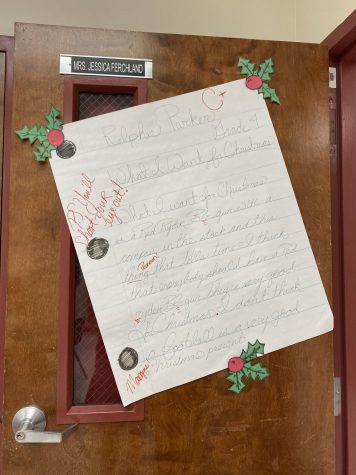 MRS. JESSICA FERCHLAND
C+
Ralphie Parker
Grade 4
What I Want for Christmas
P.S. You'll
shoot your
eye out!
What I want for Christmas
is a Red Ryder BB gun with a
compass in the stock and this
thing that tells time. I think
that everybody should have a Red
Ryder BB gun. They're very good
for Christmas. I don't think
a football is a very good
Christmas present.